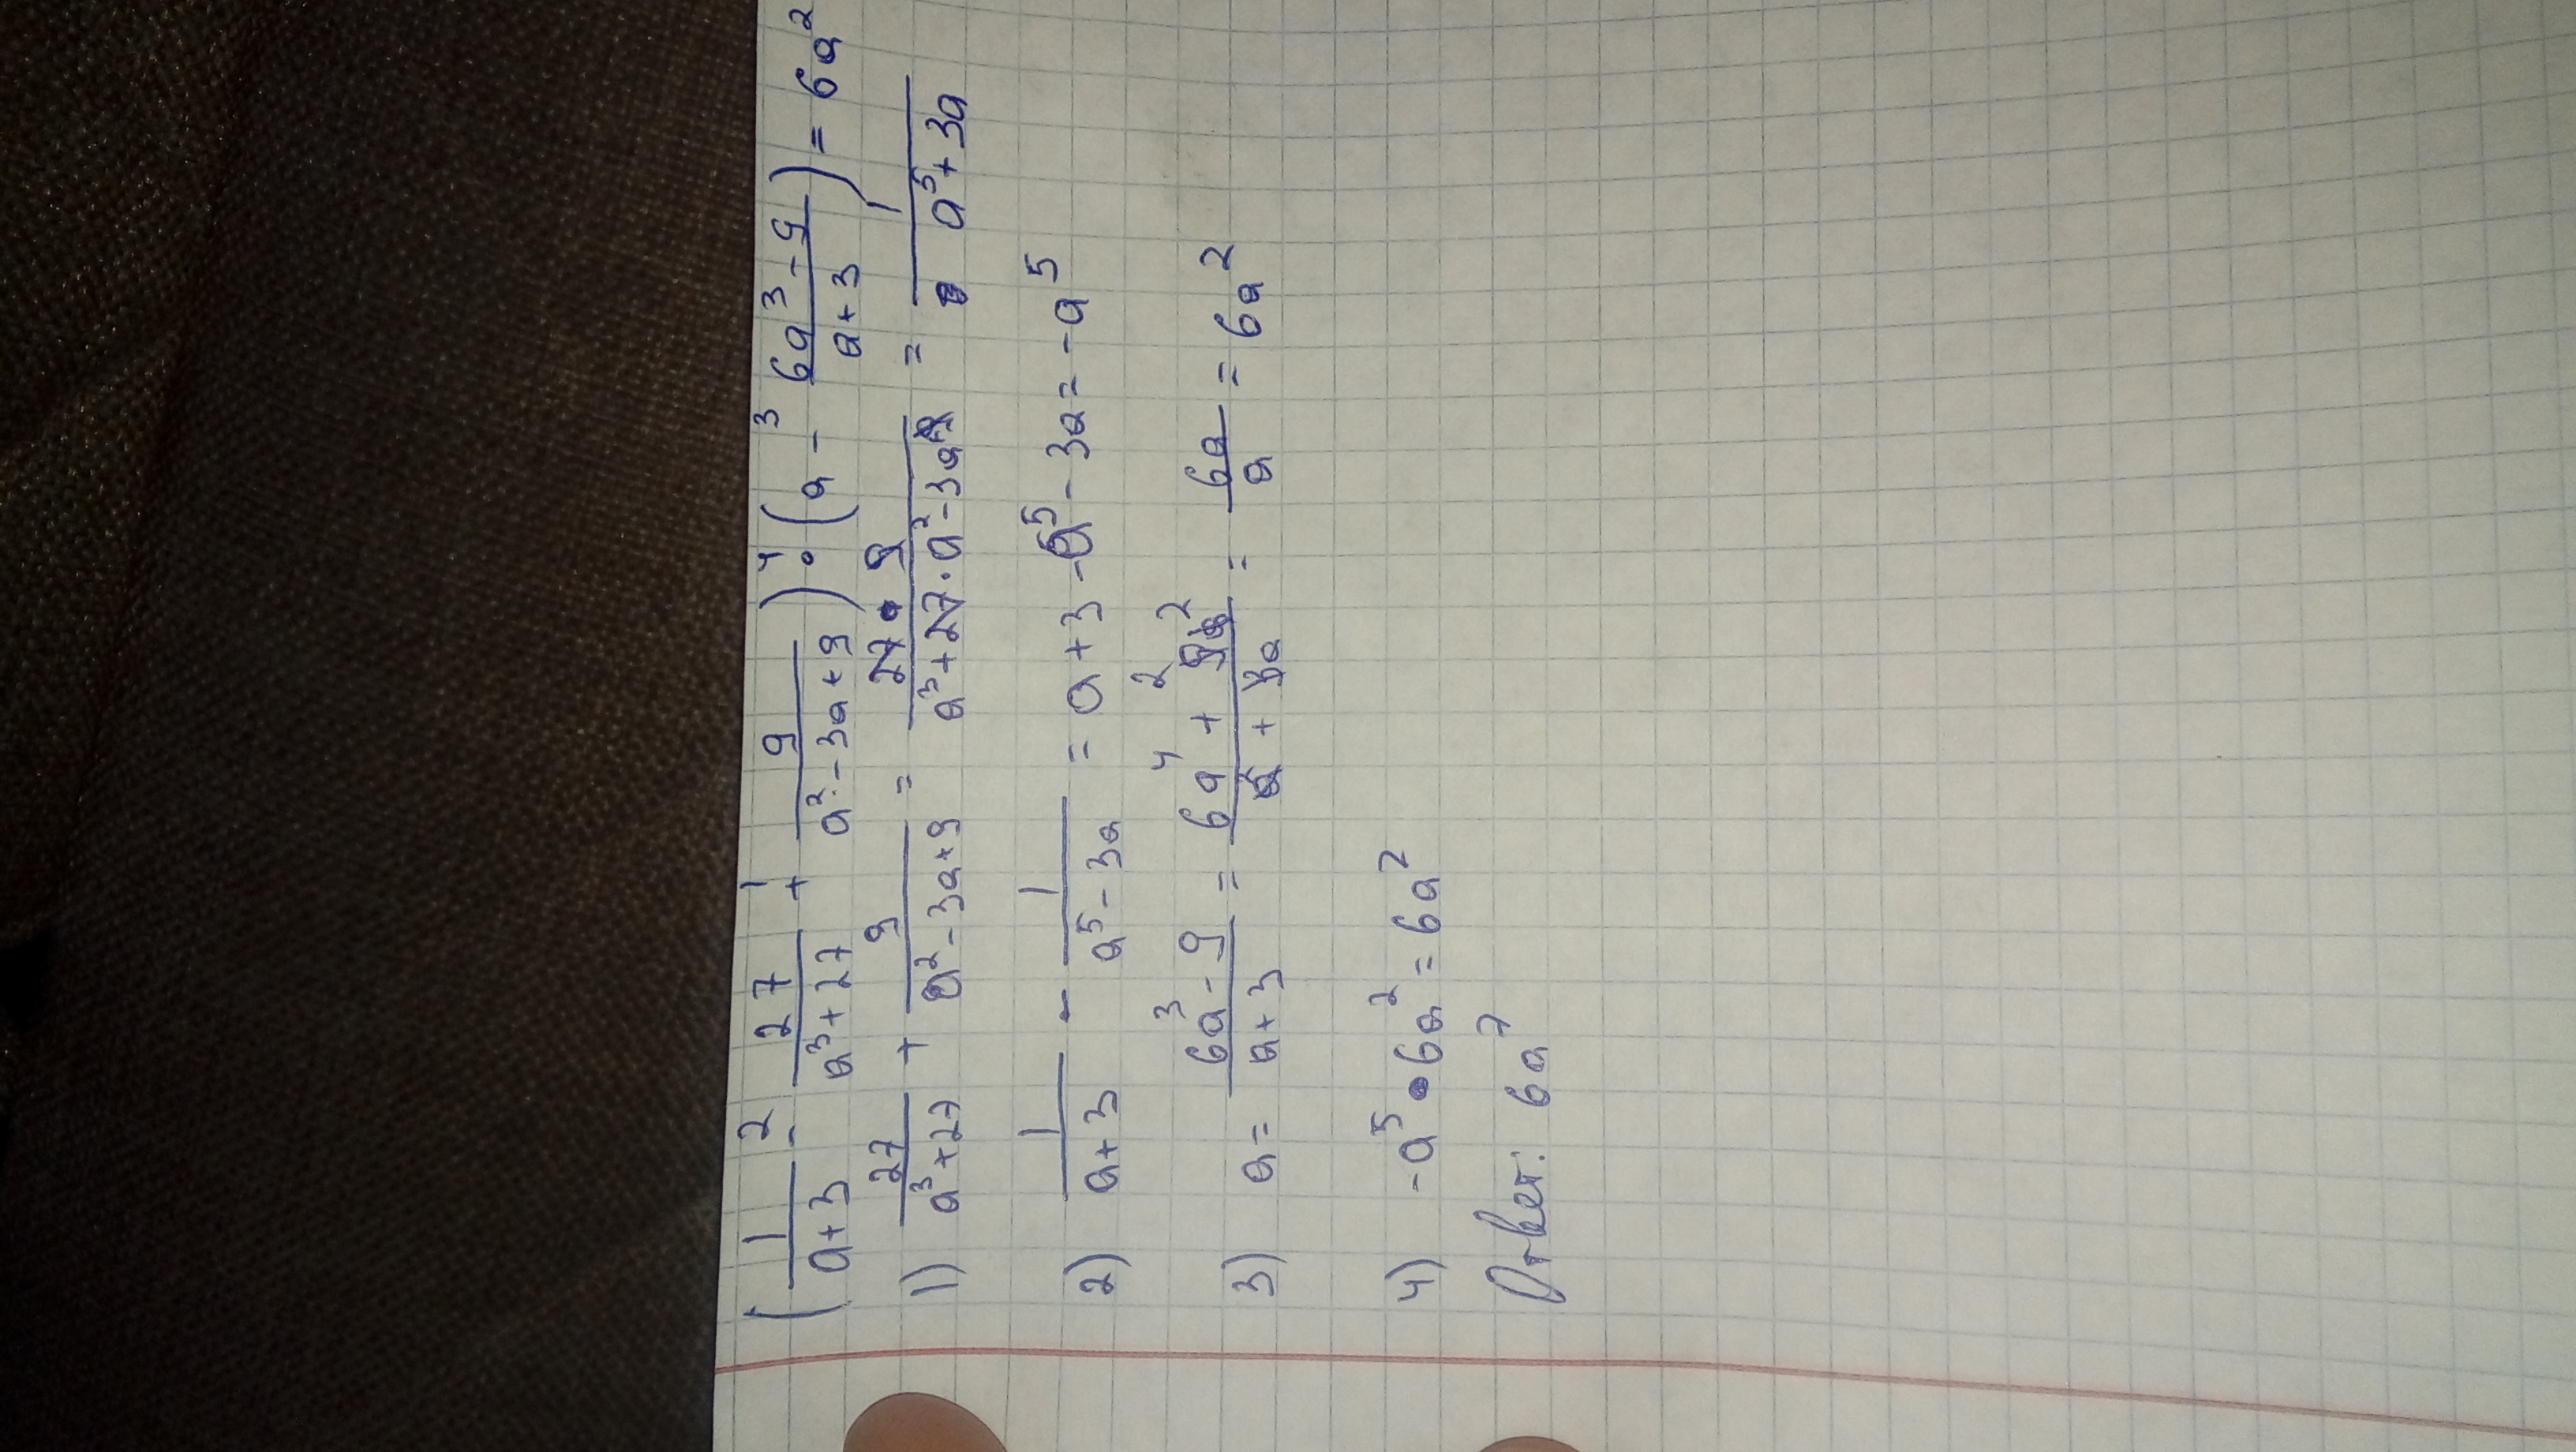 (1/(a+3) -² 27/(a³+27) +¹ 9/(a²-3a+9)) ·⁴ (a -³ (6a³-9)/(a+3)) = 6a²
1) 27/(a³+27) + 9/(a²-3a+9) = (27·9)/(a³+27·a²-3a) = 1/(a⁵+3a)
2) 1/(a+3) - 1/(a⁵-3a) = a+3-a⁵-3a=-a⁵
3) a= (6a³-9)/(a+3) = (6a⁴+²)/(+3a) = 6a/a = 6a²
4) -a⁵·6a²=6a²
Ответ: 6a⁷